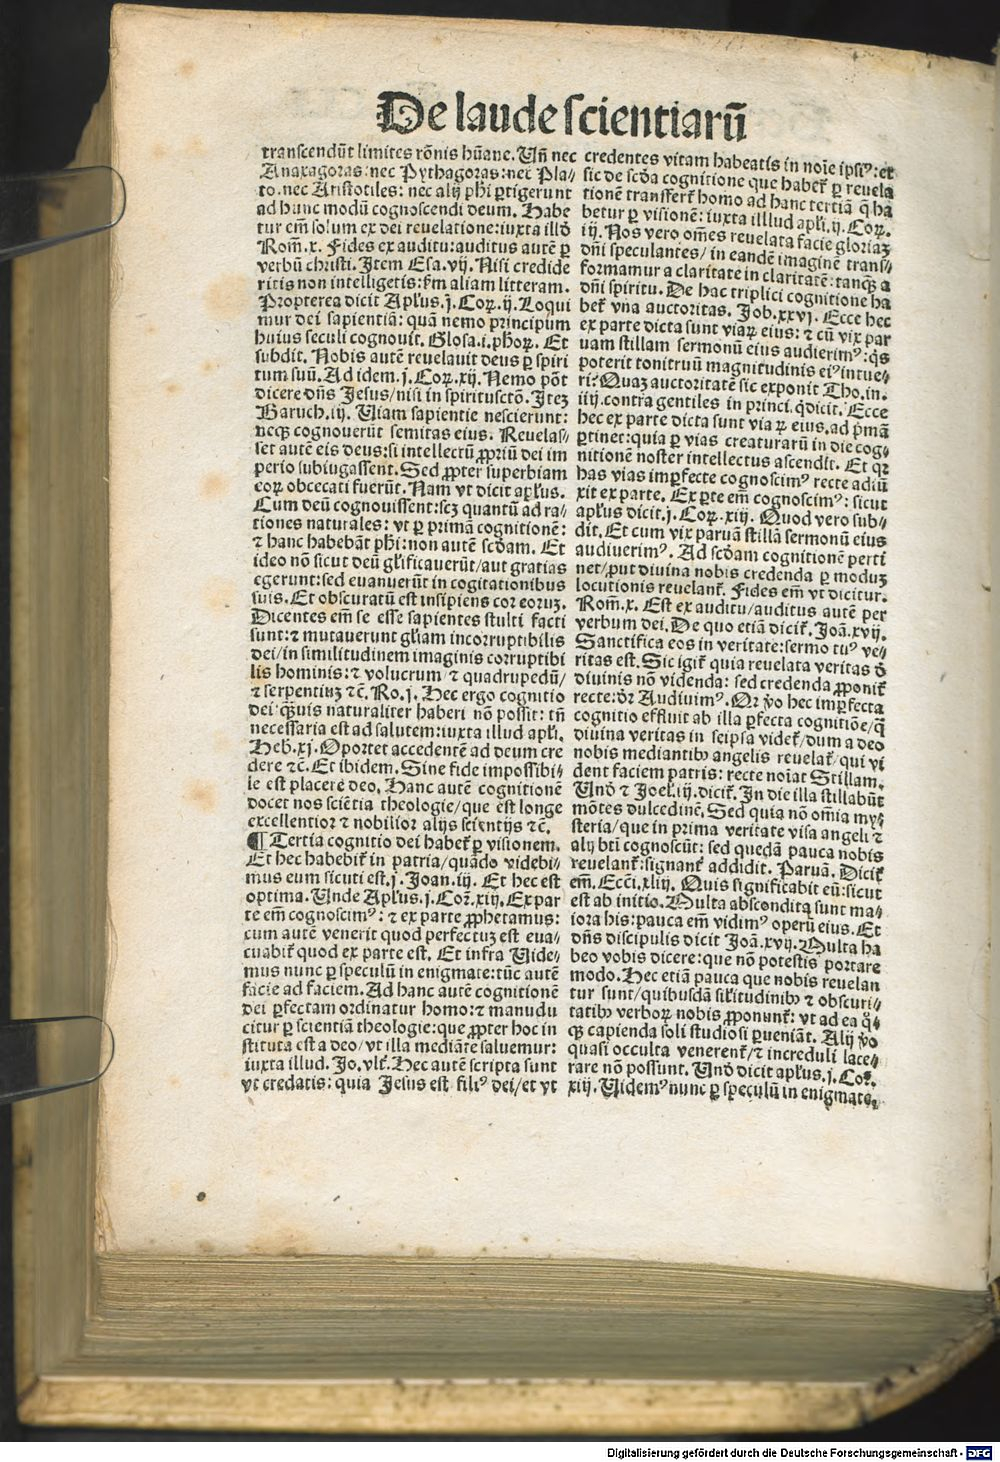 De laude scientiarū
transcendūt limites rōnis hūane. Uñ nec
Anaxagoras: nec Pythagoras: nec Pla⸗
to. nec Aristotiles: nec alij phi ꝑtigerunt
ad hunc modū cognoscendi deum. Habe
tur em̄ solum ex dei reuelatione: iuxta illđ
Rom̄. x. Fides ex auditu: auditus autē ꝑ
verbū christi. Item Esa. vij. Nisi credide
ritis non intelligetis: s̄m aliam litteram.
Propterea dicit Apl̄us. j. Coꝝ. ij. Loqui
mur dei sapientiā: quā nemo principum
huius seculi cognouit. Glosa. i. ph̄oꝝ. Et
subdit. Nobis autē reuelauit deus ꝑ spiri
tum suū. Ad idem. j. Coꝝ. xij. Nemo pōt
dicere dn̄s Jesus/ nisi in spiritusctō. Iteꝫ
Baruch. iij. Uiam sapientie nescierunt:
necꝗ cognouerūt semitas eius. Reuelas⸗
set autē eis deus: si intellectū ꝓpriū dei im
perio subiugassent. Sed ꝓpter superbiam
eoꝝ obcecati fuerūt. Nam vt dicit apl̄us.
Cum deū cognouissent: scꝫ quantū ad ra⸗
tiones naturales: vt ꝑ primā cognitionē:
⁊ hanc habebāt ph̄i: non autē scđam. Et
ideo nō sicut deū gl̄ificauerūt/ aut gratias
egerunt: sed euanuerūt in cogitationibus
suis. Et obscuratū est insipiens cor eoruꝫ.
Dicentes em̄ se esse sapientes stulti facti
sunt: ⁊ mutauerunt gl̄iam incorruptibilis
dei/ in similitudinem imaginis corruptibi
lis hominis: ⁊ volucrum ⁊ quadrupedū/
⁊ serpentiuꝫ ⁊c̄. Ro. j. Hec ergo cognitio
dei q̄ꝫuis naturaliter haberi nō possit: tn̄
necessaria est ad salutem: iuxta illud apl̄i.
Heb. xj. Oportet accedentē ad deum cre
dere ⁊c̄. Et ibidem. Sine fide impossibi⸗
le est placere deo. Hanc autē cognitionē
docet nos sciētia theologie/ que est longe
excellentior ⁊ nobilior alijs scientijs ⁊c̄.
¶ Tertia cognitio dei habet̄ ꝑ visionem.
Et hec habebit̄ in patria/ quādo videbi⸗
mus eum sicuti est. j. Joan. iij. Et hec est
optima. Unde Apl̄us. j. Cor̄. xiij. Ex par
te em̄ cognoscim⁹: ⁊ ex parte ꝓphetamus:
cum autē venerit quod perfectuꝫ est eua⸗
cuabit̄ quod ex parte est. Et infra Uide⸗
mus nunc ꝑ speculū in enigmate: tūc autē
facie ad faciem. Ad hanc autē cognitionē
dei ꝑfectam ordinatur homo: ⁊ manudu
citur ꝑ scientiā theologie: que ꝓpter hoc in
stituta est a deo/ vt illa mediāte saluemur:
iuxta illud. Jo. vlt̄. Hec autē scripta sunt
vt credatis: quia Jesus est fili⁹ dei/ et vt
credentes vitam habeatis in noīe ipsi⁹: et
sic de scđa cognitione que habet̄ ꝑ reuela
tionē transfert̄ homo ad hanc tertiā q̄ ha
betur ꝑ visionē: iuxta illlud apl̄i. ij. Coꝝ.
iij. Nos vero om̄es reuelata facie gloriaꝫ
dn̄i speculantes/ in eandē imaginē trans⸗
formamur a claritate in claritatē: tanqꝫ a
dn̄i spiritu. De hac triplici cognitione ha
bet̄ vna auctoritas. Job. xxvj. Ecce hec
ex parte dicta sunt viaꝝ eius: ⁊ cū vix par
uam stillam sermonū eius audierim⁹: q̄s
poterit tonitruū magnitudinis ei⁹ intue⸗
ri? Quaꝫ auctoritatē sic exponit Tho. in.
iiij. contra gentiles in princi. q̄ dicit. Ecce
hec ex parte dicta sunt viaꝝ eius, ad p̄mā
ꝑtinet: quia ꝑ vias creaturarū in die cog⸗
nitionē noster intellectus ascendit. Et qꝛ
has vias imꝑfecte cognoscim⁹ recte adiū
xit ex parte. Ex ꝑte em̄ cognoscim⁹: sicut
apl̄us dicit. j. Coꝝ. xiij. Quod vero sub⸗
dit. Et cum vix paruā stillā sermonū eius
audiuerim⁹. Ad scđam cognitionē perti
net/ ꝓut diuina nobis credenda ꝑ moduꝫ
locutionis reuelant̄. Fides em̄ vt dicitur.
Rom̄. x. Est ex auditu/ auditus autē per
verbum dei. De quo etiā dicit̄. Joā. xvij.
Sanctifica eos in veritate: sermo tu⁹ ve⸗
ritas est. Sic igit̄ quia reuelata veritas đ
diuinis nō videnda: sed credenda ꝓponit̄
recte: dr̄ Audiuim⁹. Qꝛ v̊o hec imꝑfecta
cognitio effluit ab illa ꝑfecta cognitiōe/ q̄
diuina veritas in seipsa videt̄/ dum a deo
nobis mediantibꝰ angelis reuelat̄/ qui vi
dent faciem patris: recte noīat Stillam.
Unđ ⁊ Joel. iij. dicit̄. In die illa stillabūt
mōtes dulcedinē. Sed quia nō om̄ia my⸗
steria/ que in prima veritate visa angeli ⁊
alij bt̄i cognoscūt: sed quedā pauca nobis
reuelant̄: signant̄ addidit. Paruā. Dicit̄
em̄. Ecci. xliij. Quis significabit eū: sicut
est ab initio. Multa abscondita sunt ma⸗
iora his: pauca em̄ vidim⁹ operū eius. Et
dn̄s discipulis dicit Joā. xvj. Multa ha
beo vobis dicere: que nō potestis portare
modo. Hec etiā pauca que nobis reuelan
tur sunt/ quibusdā sil̄itudinibꝰ ⁊ obscuri⸗
tatibꝰ verboꝝ nobis ꝓponunt̄: vt ad ea q̊⸗
qꝫ capienda soli studiosi ꝑueniāt. Alij v̊o
quasi occulta venerent̄/ ⁊ increduli lace⸗
rare nō possunt. Unđ dicit apl̄us. j. Cor̄.
xiij. Uidem⁹ nunc ꝑ speculū in enigmate.
Digitalisierung gefördert durch die Deutsche Forschungsgemeinschaft - DFG